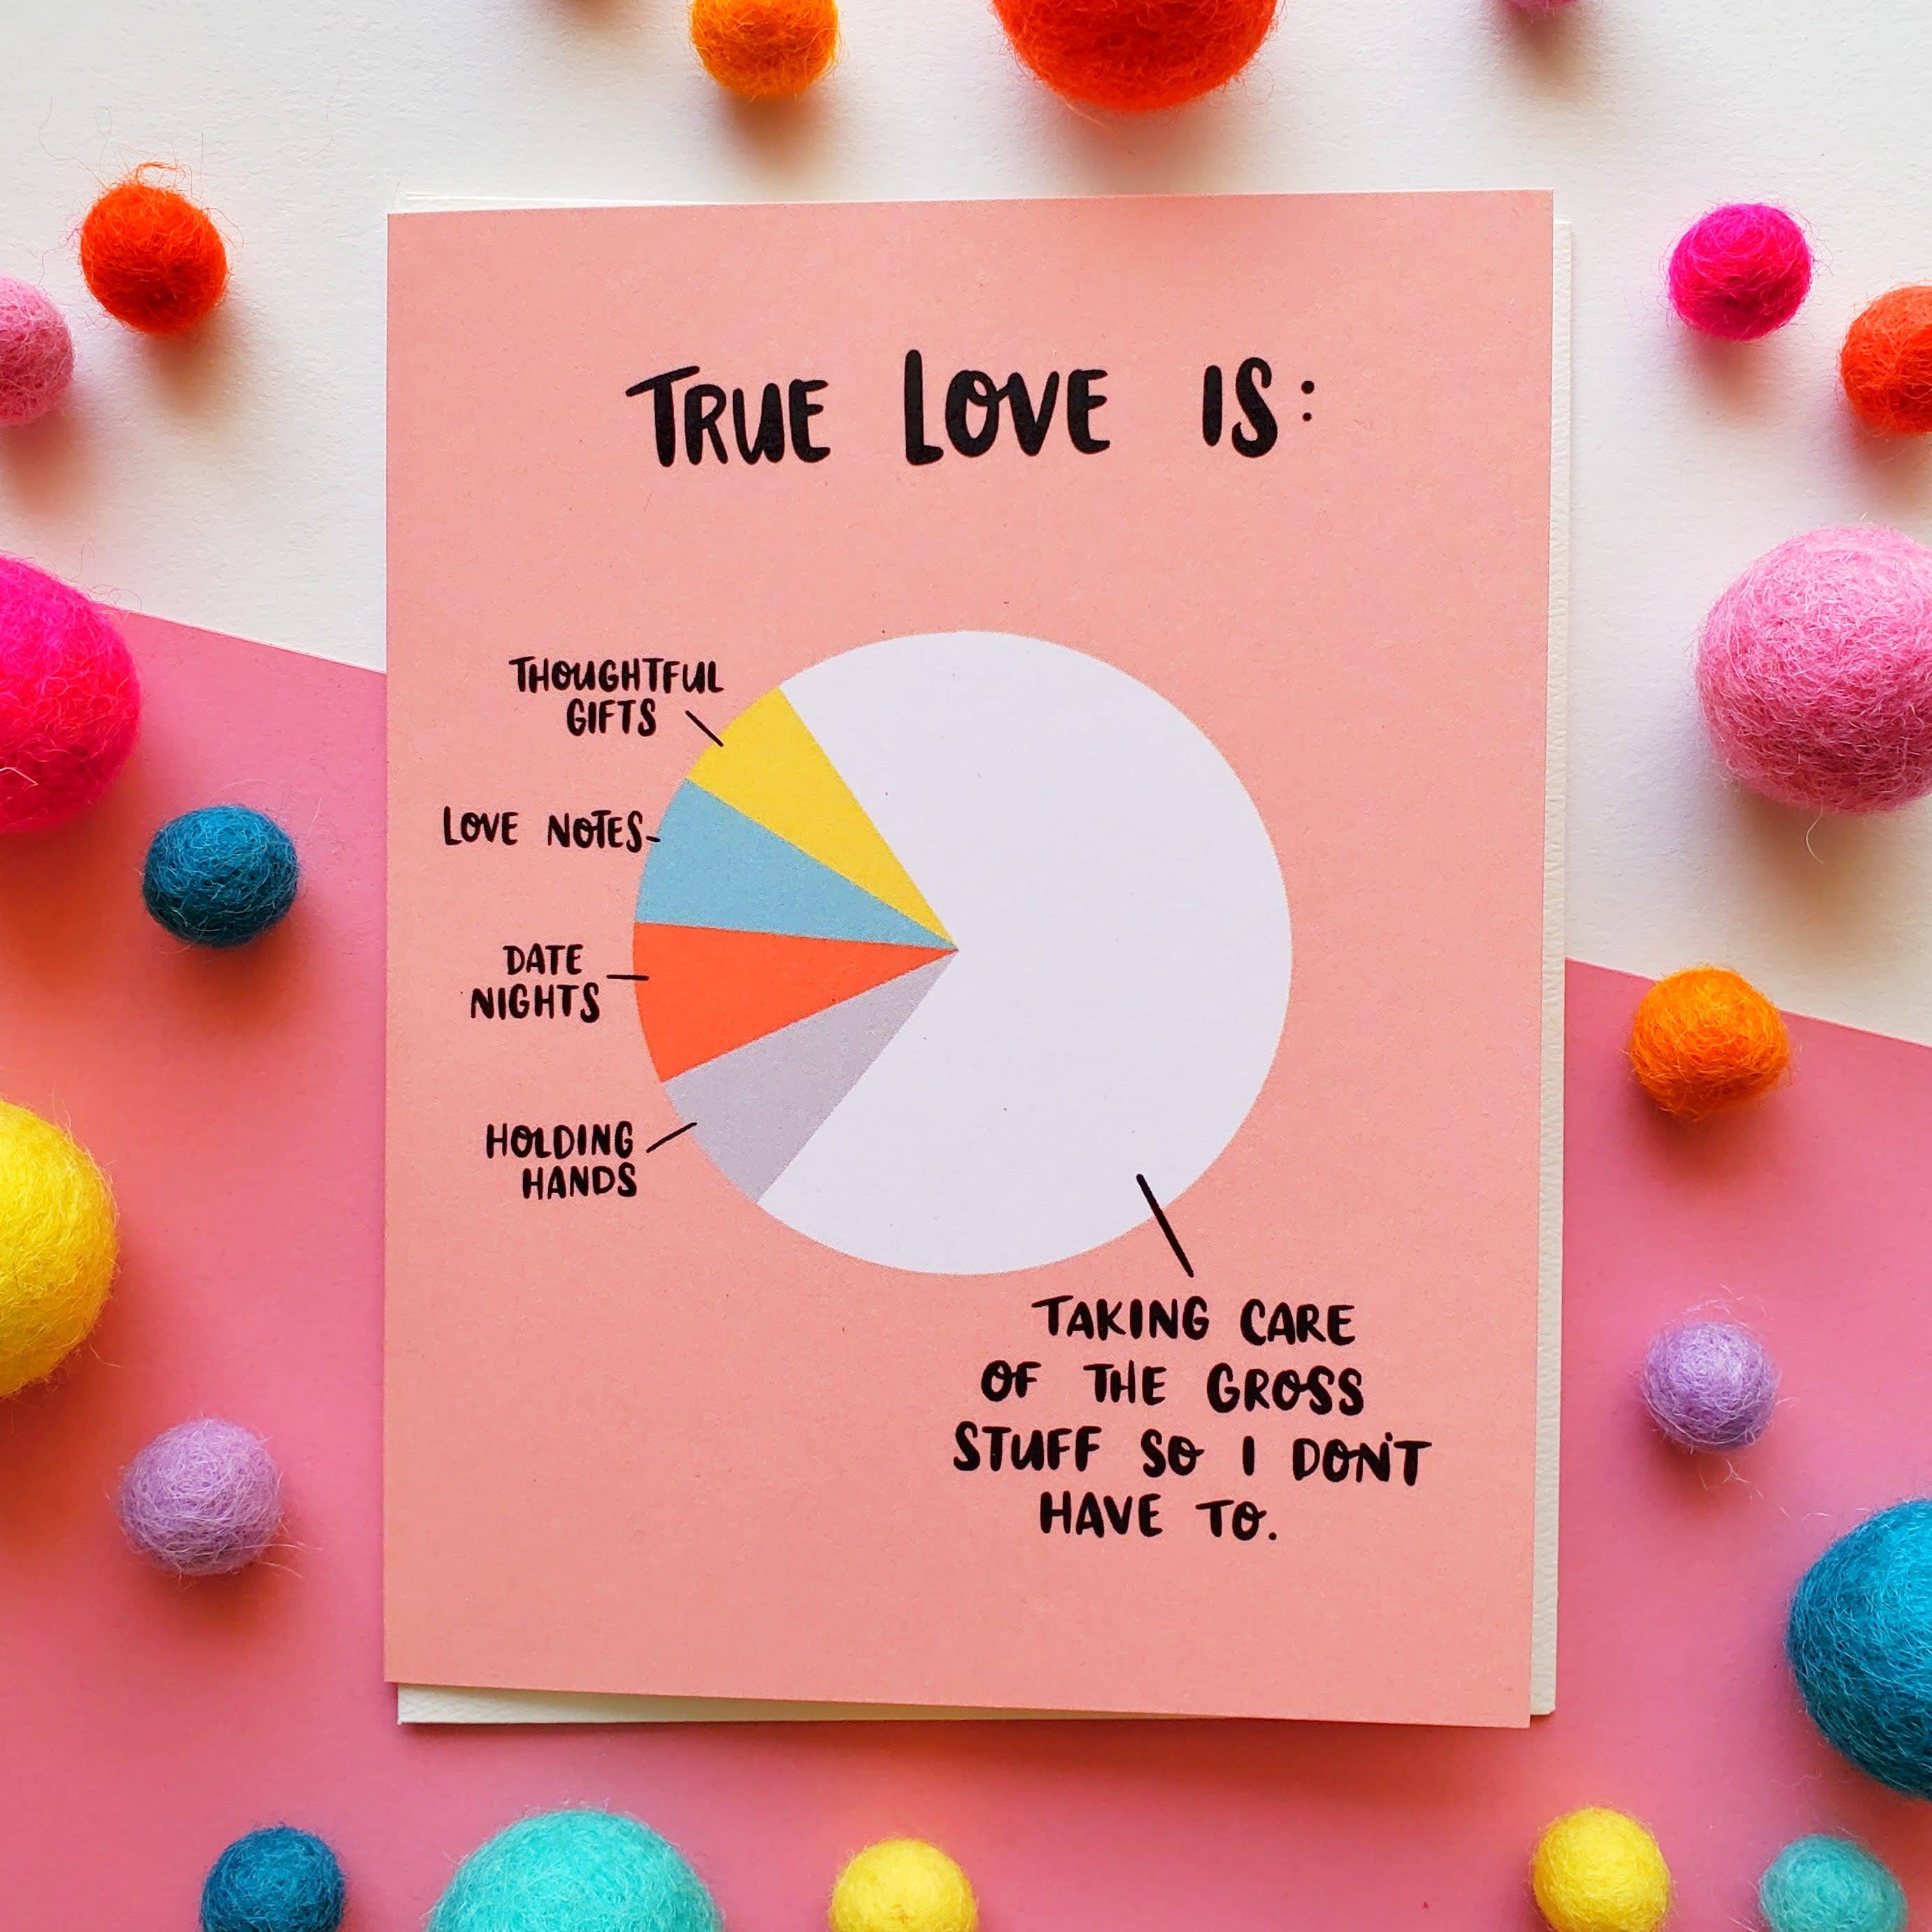 TRUE LOVE IS:
THOUGHTFUL
GIFTS
LOVE NOTES
DATE
NIGHTS
HOLDING
HANDS
TAKING CARE
OF THE GROSS
STUFF SO I DON'T
HAVE TO.